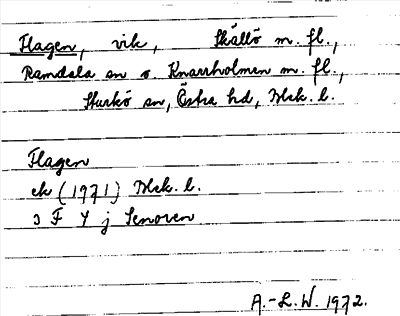 Flagen, vik, Skällö m. fl.,
Ramdala sn o. Knarrholmen m. fl.,
Sturkö sn, Östra hd, Blek. l.
Flagen
ek (1971) Blek. l.
3 F Y j Senoren
A.-L.W. 1972.